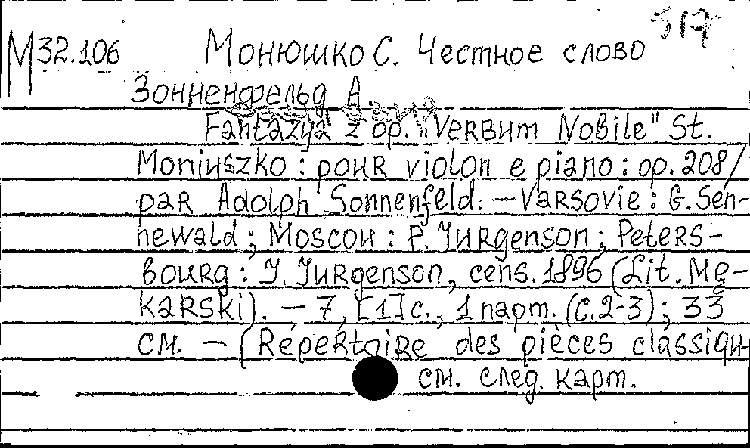 517
М32.106 Монюшко С. Честное слово
Зонненфельд А.
Fantazya z op. "Verbum Nobile" St.
Moniuszko : pour violon e piano : op. 208/
par Adolph Sonnenfeld. – Varsovie : G. Sen-
newald ; Moscou : P. Jurgenson ; Peters-
bourg : J. Jurgenson, cens. 1896 (Lit. Me-
karski). – 7, [1] с., 1 парт. (с. 2-3) ; 33
см. – (Répertoire des pièces classiqu-
см. след. карт.